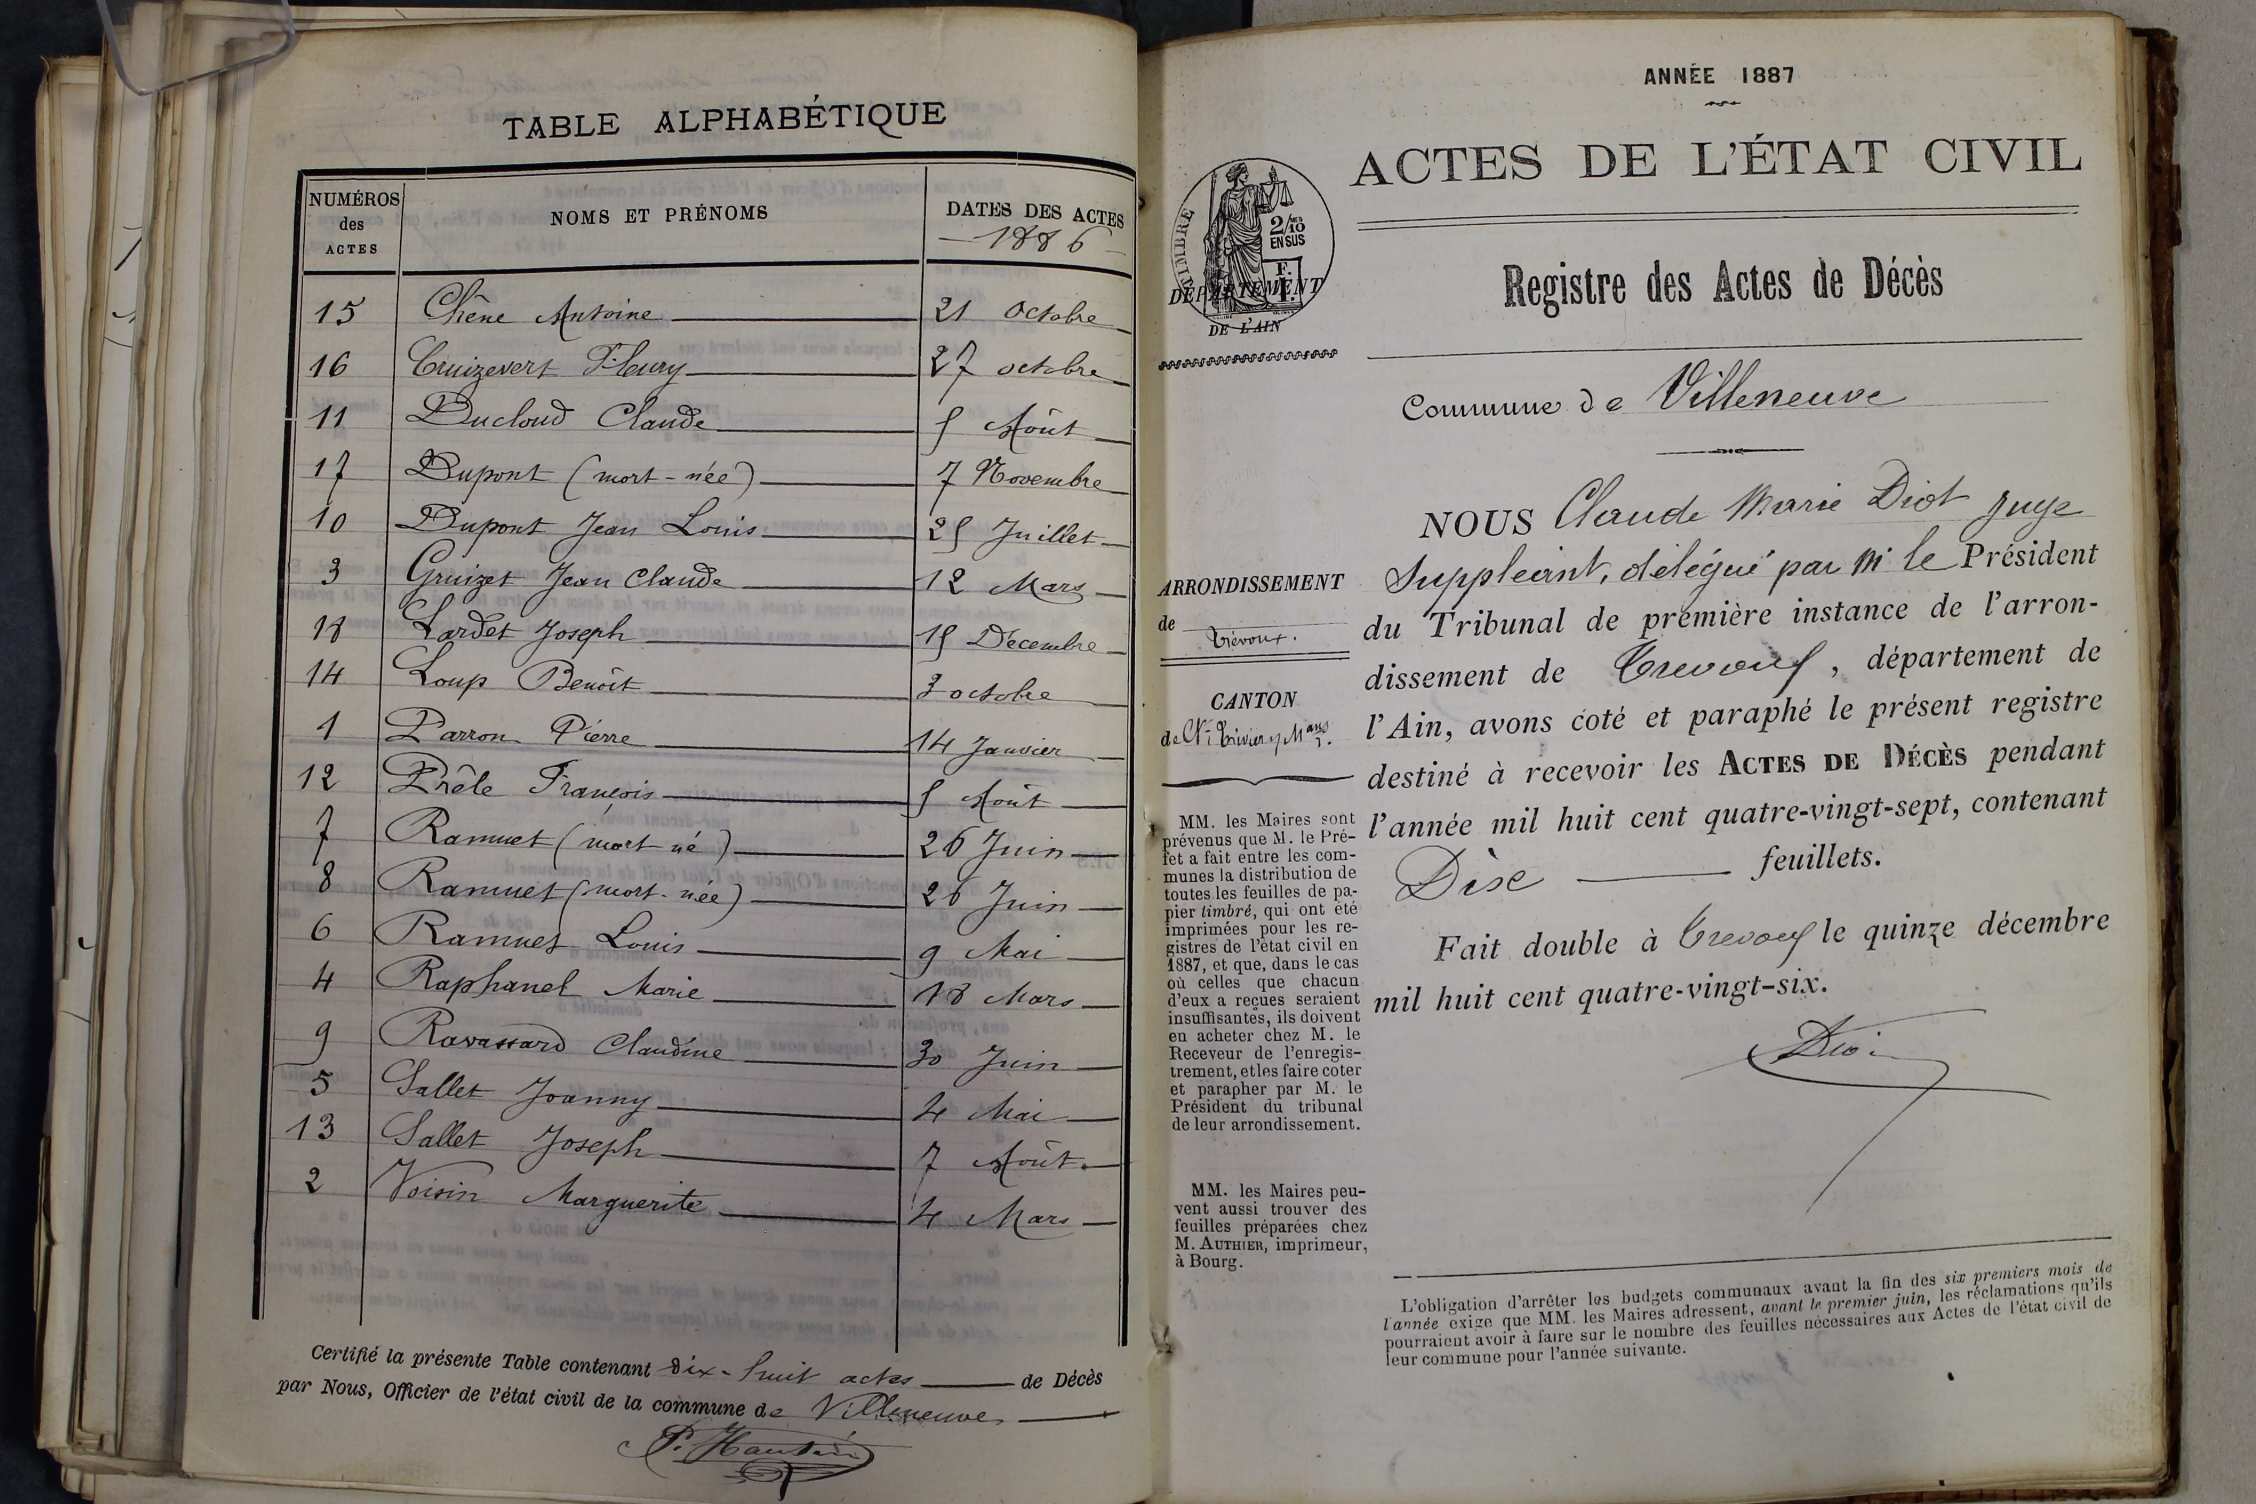 TABLE ALPHABÉTIQUE
NUMÉROS des ACTES NOMS ET PRÉNOMS DATES DES ACTES
— 1886 —
15 Chêne Antoine 21 Octobre
16 Cruizevert Fleury 27 octobre
11 Ducloud Claude 5 Août
17 Dupont (mort-née) 7 Novembre
10 Dupont Jean Louis 25 Juillet
3 Gruizet Jean Claude 12 Mars
18 Lardet Joseph 15 Décembre
14 Loup Benoît 3 octobre
1 Parron Pierre 14 Janvier
12 Prêle François 5 Août
7 Ramuet (mort né) 26 Juin
8 Ramuet (mort-née) 26 Juin
6 Ramuet Louis 9 Mai
4 Raphanel Marie 18 Mars
9 Ravassard Claudine 30 Juin
5 Sallet Joanny 4 Mai
13 Sallet Joseph 7 Août
2 Voisin Marguerite 4 Mars
Certifié la présente Table contenant dix-huit actes de Décès
par Nous, Officier de l'état civil de la commune de Villeneuve
ANNÉE 1887
ACTES DE L'ÉTAT CIVIL
TIMBRE
2/10 EN SUS
DÉPARTEMENT
DE L'AIN
Registre des Actes de Décès
Commune de Villeneuve
ARRONDISSEMENT
de Trévoux.
CANTON
de
MM. les Maires sont
prévenus que M. le Pré-
fet a fait entre les com-
munes la distribution de
toutes les feuilles de pa-
pier timbré, qui ont été
imprimées pour les re-
gistres de l'état civil en
1887, et que, dans le cas
où celles que chacun
d'eux a reçues seraient
insuffisantes, ils doivent
en acheter chez M. le
Receveur de l'enregis-
trement, et les faire coter
et parapher par M. le
Président du tribunal
de leur arrondissement.
MM. les Maires peu-
vent aussi trouver des
feuilles préparées chez
M. AUTHIER, imprimeur,
à Bourg.
NOUS Claude Marie Diot Juge
Suppléant, délégué par Mr le Président
du Tribunal de première instance de l'arron-
dissement de Trevoux, département de
l'Ain, avons coté et paraphé le présent registre
destiné à recevoir les ACTES DE DÉCÈS pendant
l'année mil huit cent quatre-vingt-sept, contenant
Dix feuillets.
Fait double à Trevoux le quinze décembre
mil huit cent quatre-vingt-six.
L'obligation d'arrêter les budgets communaux avant la fin des six premiers mois de
l'année exige que MM. les Maires adressent, avant le premier juin, les réclamations qu'ils
pourraient avoir à faire sur le nombre des feuilles nécessaires aux Actes de l'état civil de
leur commune pour l'année suivante.